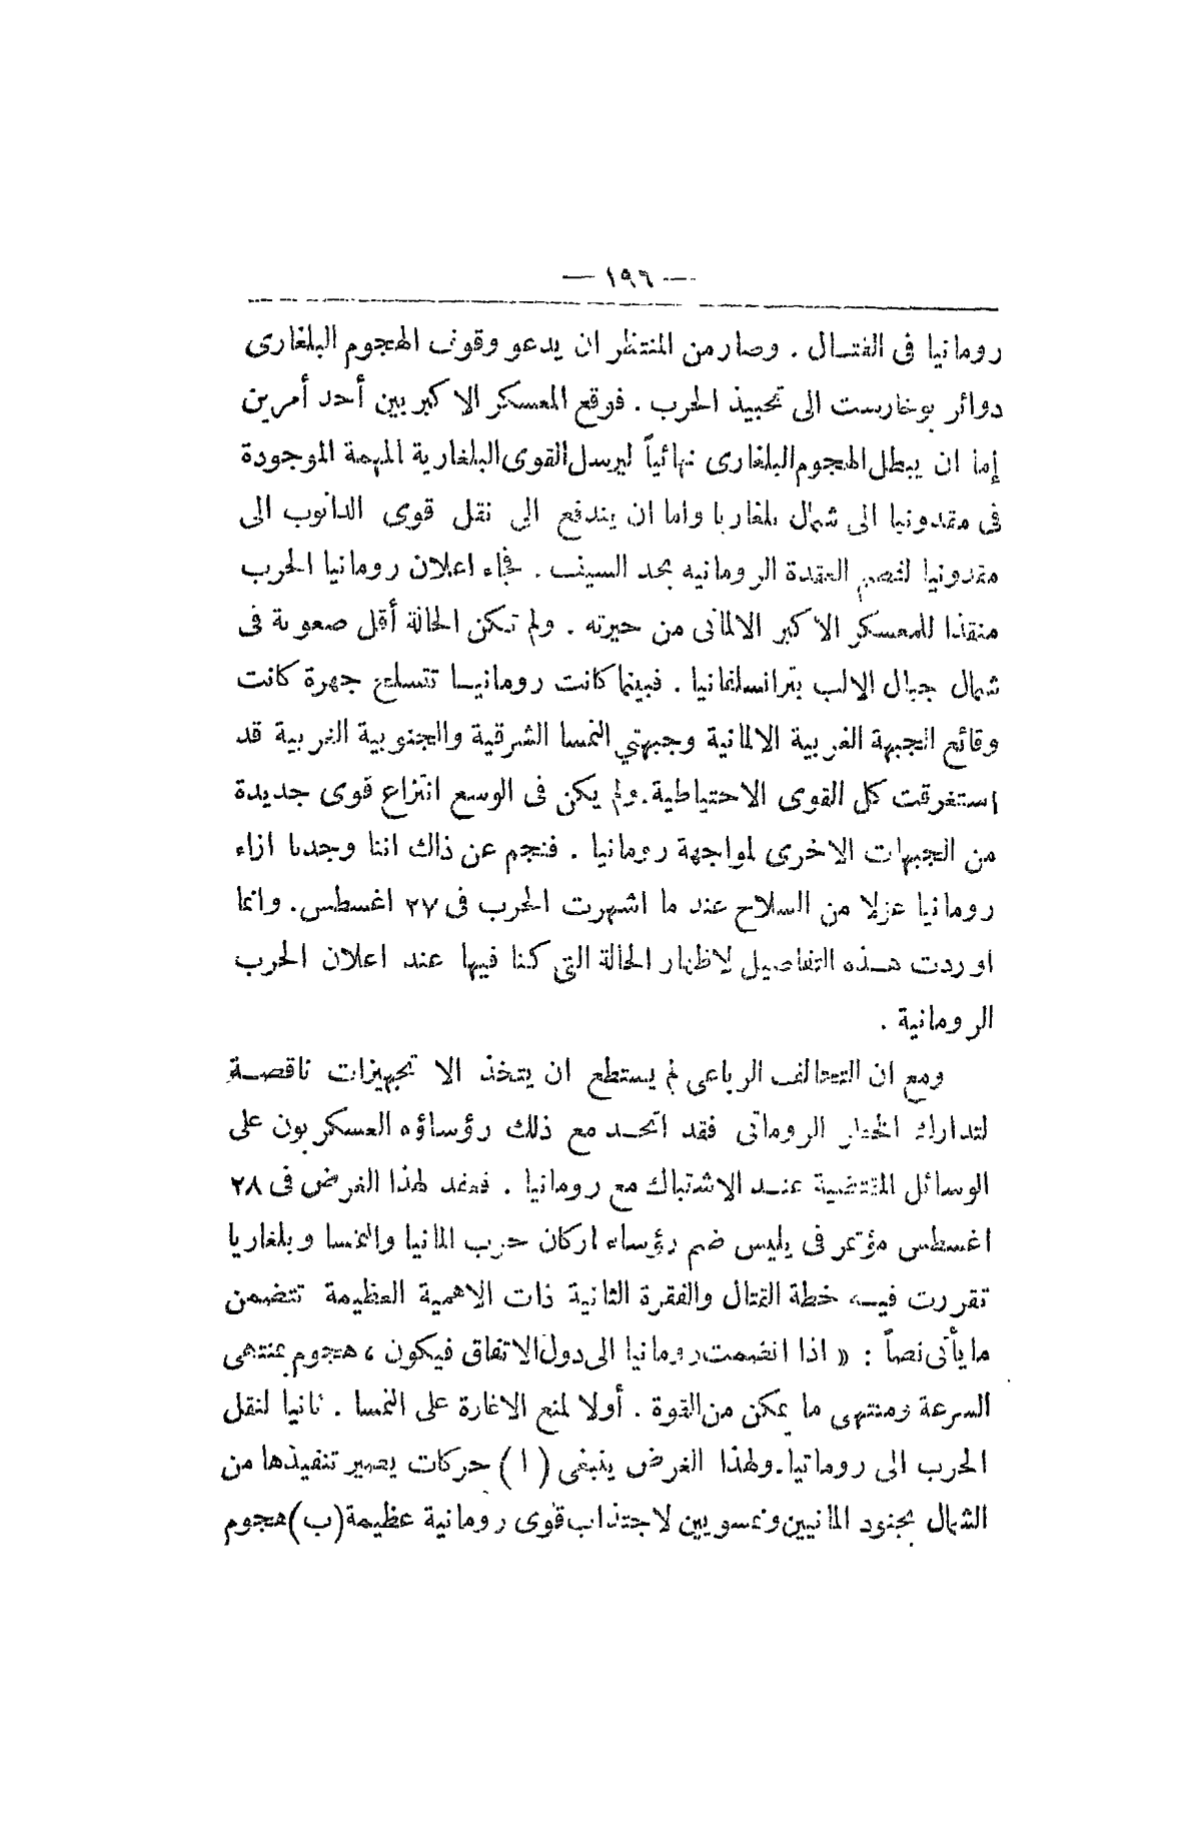 — ١٩٦ —
رومانيا فى القتـال . وصار من المنتظر ان يدعو وقوف الهجوم البلغارى
دوائر بوخارست الى تحبيذ الحرب . فوقع المعسكر الاكبر بين أحد أمرين
إما ان يبطل الهجوم البلغارى نهائياً ليرسل القوى البلغارية المهمة الموجودة
فى مقدونيا الى شمال بلغاريا واما ان يندفع الى نقل قوى الدانوب الى
مقدونيا لفصم العقدة الرومانيه بحد السيف . فجاء اعلان رومانيا الحرب
منقذا للمعسكر الاكبر الالمانى من حيرته . ولم تكن الحالة أقل صعوبة فى
شمال جبال الالب بترانسلفانيا . فبينما كانت رومانيـا تتسلح جهرة كانت
وقائع الجبهة الغربية الالمانية وجبهتي النمسا الشرقية والجنوبية الغربية قد
استغرقت كل القوى الاحتياطية . ولم يكن فى الوسع انتزاع قوى جديدة
من الجبهات الاخرى لمواجهة رومانيا . فنجم عن ذاك اننا وجدنا ازاء
رومانيا عزلا من السلاح عند ما اشهرت الحرب فى ٢٧ اغسطس . وانما
اوردت هـذه التفاصيل لاظهار الحالة التى كنا فيها عند اعلان الحرب
الرومانية .
ومع ان التحالف الرباعى لم يستطع ان يتخذ الا تجهيزات ناقصـة
لتدارك الخطر الرومانى فقد اتحـد مع ذلك رؤساؤه العسكريون على
الوسائل المقتضية عنـد الاشتباك مع رومانيا . فعقد لهذا الغرض فى ٢٨
اغسطس مؤتمر فى بليس ضم رؤساء اركان حرب المانيا والنمسا وبلغاريا
تقررت فيـه خطة القتال والفقرة الثانية ذات الاهمية العظيمة تتضمن
ما يأتى نصاً : « اذا انضمت رومانيا الى دول الاتفاق فيكون ، هجوم بمنتهى
السرعة ومنتهى ما يمكن من القوة . أولا لمنع الاغارة على النمسا . ثانيا لنقل
الحرب الى رومانيا . ولهذا الغرض ينبغى ( ا ) حركات يصير تنفيذها من
الشمال بجنود المانيين ونمسويين لاجتذاب قوى رومانية عظيمة (ب) هجوم